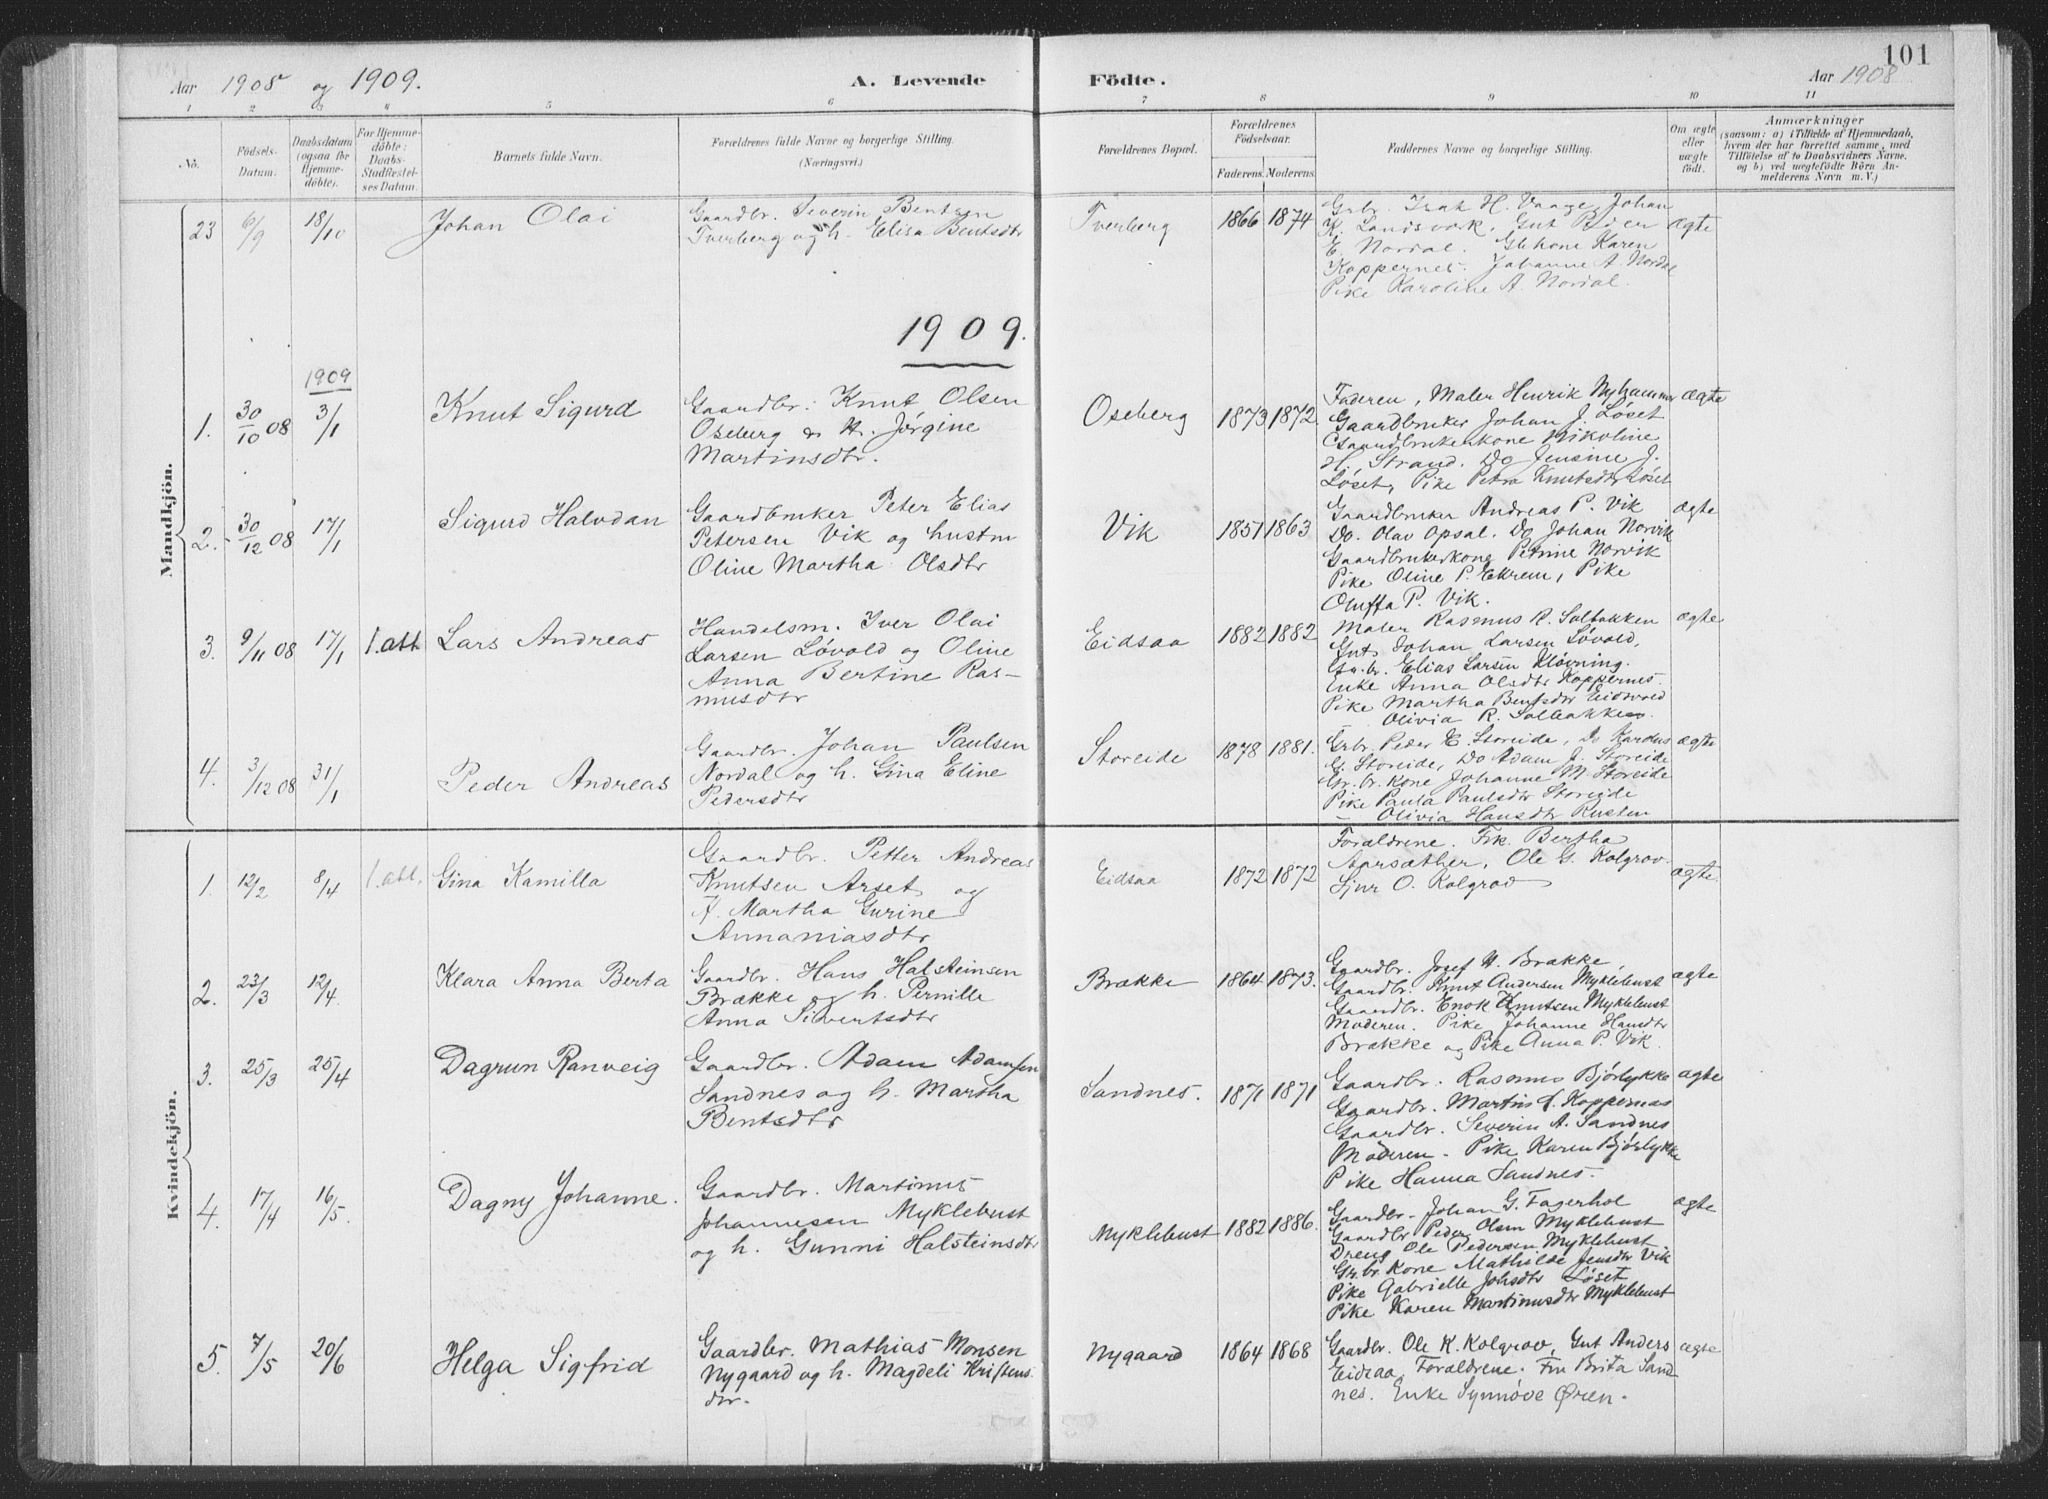 101
Aar 1908 og 1909.
A. Levende
Födte.
Aar 1908
1 2 3 4 5 6 7 8 9 10 11
No.
Födsels-
Datum.
Daabsdatum
(ogsaa for
Hjemme-
döbte).
For Hjemme-
döbte:
Daabs-
Stadfæstel-
ses Datum.
Barnets fulde Navn.
Forældrenes fulde Navne og borgerlige Stilling.
(Næringsvei.)
Forældrenes Bopæl.
Forældrenes
Födselsaar.
Faderens. Moderens.
Faddernes Navne og borgerlige Stilling.
Om ægte
eller
uægte
födt.
Anmærkninger
(saasom: a) i Tilfælde af Hjemmedaab,
hvem der har forrettet samme, med
Tilföielse af to Daabsvidners Navne,
og b) ved uægtefödte Börn An-
melderens Navn m. V.)
Mandkjön.
23 6/9 18/10 Johan Olai
Gaardbr. Severin Bentsen
Tverberg og h. Elisa Bentsdtr
Tverberg 1866 1874
Grbr. Isak H. Vaage, Johan
K. Landsverk, Gut Peder
E. Nordal. Gbkone Karen
Koppernes. Johanne A. Nordal
Pike Karoline A. Nordal.
ægte
1909.
1909
1. 30/10 08 3/1 Knut Sigurd
Gaardbr. Knut Olsen
Oseberg & H. Jørgine
Martinsdtr.
Oseberg 1873 1872
Faderen, Maler Henrik Nyhammer
Gaardbruker Johan J. Løset
Gaardbrukerkone Nikoline
H. Strand. Do Jensine J.
Løset, Pike Petra Knutsdtr Løset
ægte
2. 30/12 08 17/1 Sigurd Halvdan
Gaardbruker Peter Elias
Petersen Vik og hustru
Oline Martha Olsdtr
Vik 1857 1863
Gaardbruker Andreas P. Vik
Do. Olav Opsal. Do Johan Norvik
Gaardbrukerkone Petrine Norvik
Pike Oline P. Ekrem, Pike
Oluffa P. Vik.
ægte
3. 9/11 08 17/1 1. att. Lars Andreas
Handelsm. Iver Olai
Larsen Løvold og Oline
Anna Bertine Ras-
musdtr
Eidsaa 1882 1882
Maler Rasmus R. Solbakken
Gut Johan Larsen Løvold,
Gr. br. Elias Larsen Kløvning.
Enke Anna Olsdtr Koppernes.
Pike Martha Bentsdtr Eidsvold
Olivia R. Solbakken.
ægte
4. 3/12 08 31/1 Peder Andreas
Gaardbr. Johan Paulsen
Nordal og h. Gina Eline
Pedersdtr
Storeide 1878 1881.
Grbr. Peder E. Storeide, Do Kardus
G. Storeide, Do Adam J. Storeide
Gr. br. kone Johanne M. Storeide
Pike Paula Paulsdtr Storeide
– Olivia Hansdtr Rusten
ægte
Kvindekjön.
1. 12/2 8/4 1. att. Gina Kamilla
Gaardbr. Petter Andreas
Knutsen Arset og
h. Martha Gurine
Annaniasdtr
Eidsaa 1872 1872
Forældrene. Frk. Bertha
Aarsæther, Ole G. Kolgrov.
Sjur O. Kolgrov
ægte
2. 23/3 12/4. Klara Anna Berta
Gaardbr. Hans Halsteinsen
Brække og h. Pernille
Anna Sivertsdtr
Brække 1864 1873.
Gaardbr. Josef H. Brække,
Gaardbr. Knut Andersen Myklebust
Gaardbr. Enok Knutsen Myklebust
Moderen. Pike Johanne Hansdtr
Brække og Pike Anna P. Vik.
ægte
3. 25/3 25/4 Dagrun Ranveig
Gaardbr. Adam Adamsen
Sandnes og h. Martha
Bentsdtr
Sandnes. 1871 1871
Gaardbr. Rasmus Bjørlykke
Gaardbr. Martin Koppernæs
Gaardbr. Severin A. Sandnes
Moderen. Pike Karen Bjørlykke
Pike Hanna Sandnes.
ægte
4. 17/4 16/5. Dagny Johanne.
Gaardbr. Martinus
Johannesen Myklebust
og h. Gunni Halsteinsdtr
Myklebust 1882 1886.
Gaardbr. Johan G. Fagerhol
Gaardbr Peder Olsen Myklebust
Dreng Ole Pedersen Myklebust
Gr. br. kone Mathilde Jensdtr Vik
Pike Gabrielle Johsdtr Løset
Pike Karen Martinusdtr Myklebust
ægte
5. 7/5 20/6 Helga Sigfrid
Gaardbr. Mathias Monsen
Nygaard og h. Magdeli Kristens
dtr.
Nygaard 1864 1868
Gaardbr. Ole K. Kolgrov, Gut Anders
Eidsaa, Forældrene. Fru Brita Sand
nes. Enke Synnøve Øren.
ægte